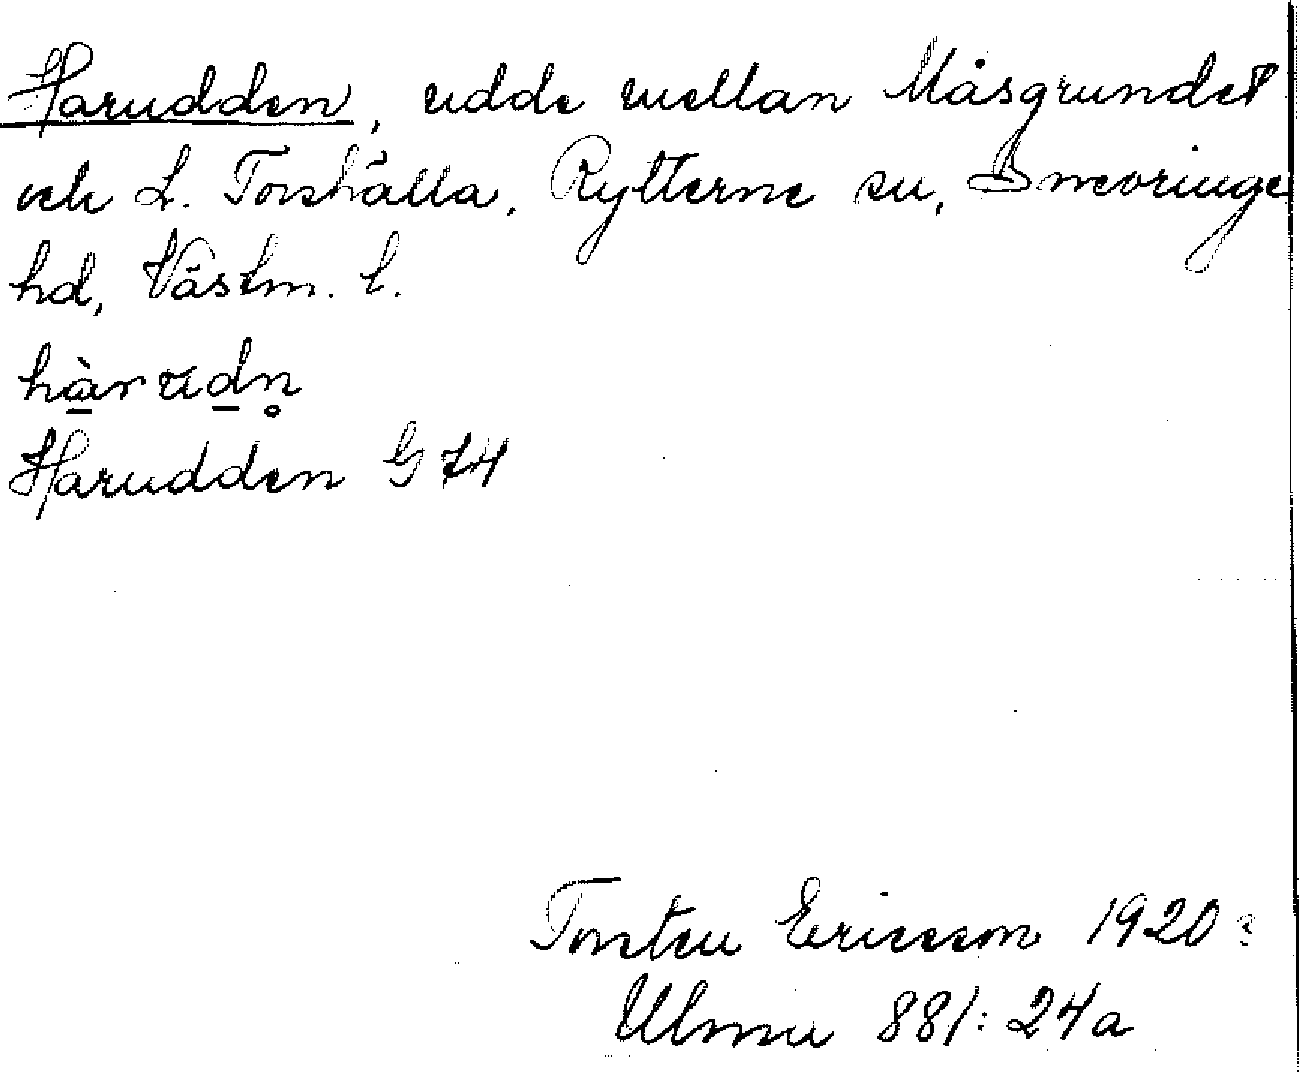 Harudden, udde mellan Måsgrundet
och L. Torshälla, Rytterne sn, Snevringe
hd, Västm. l.
hàrudn̥
Harudden G 74
Torsten Ericsson 1920?
Ulma 881:24a